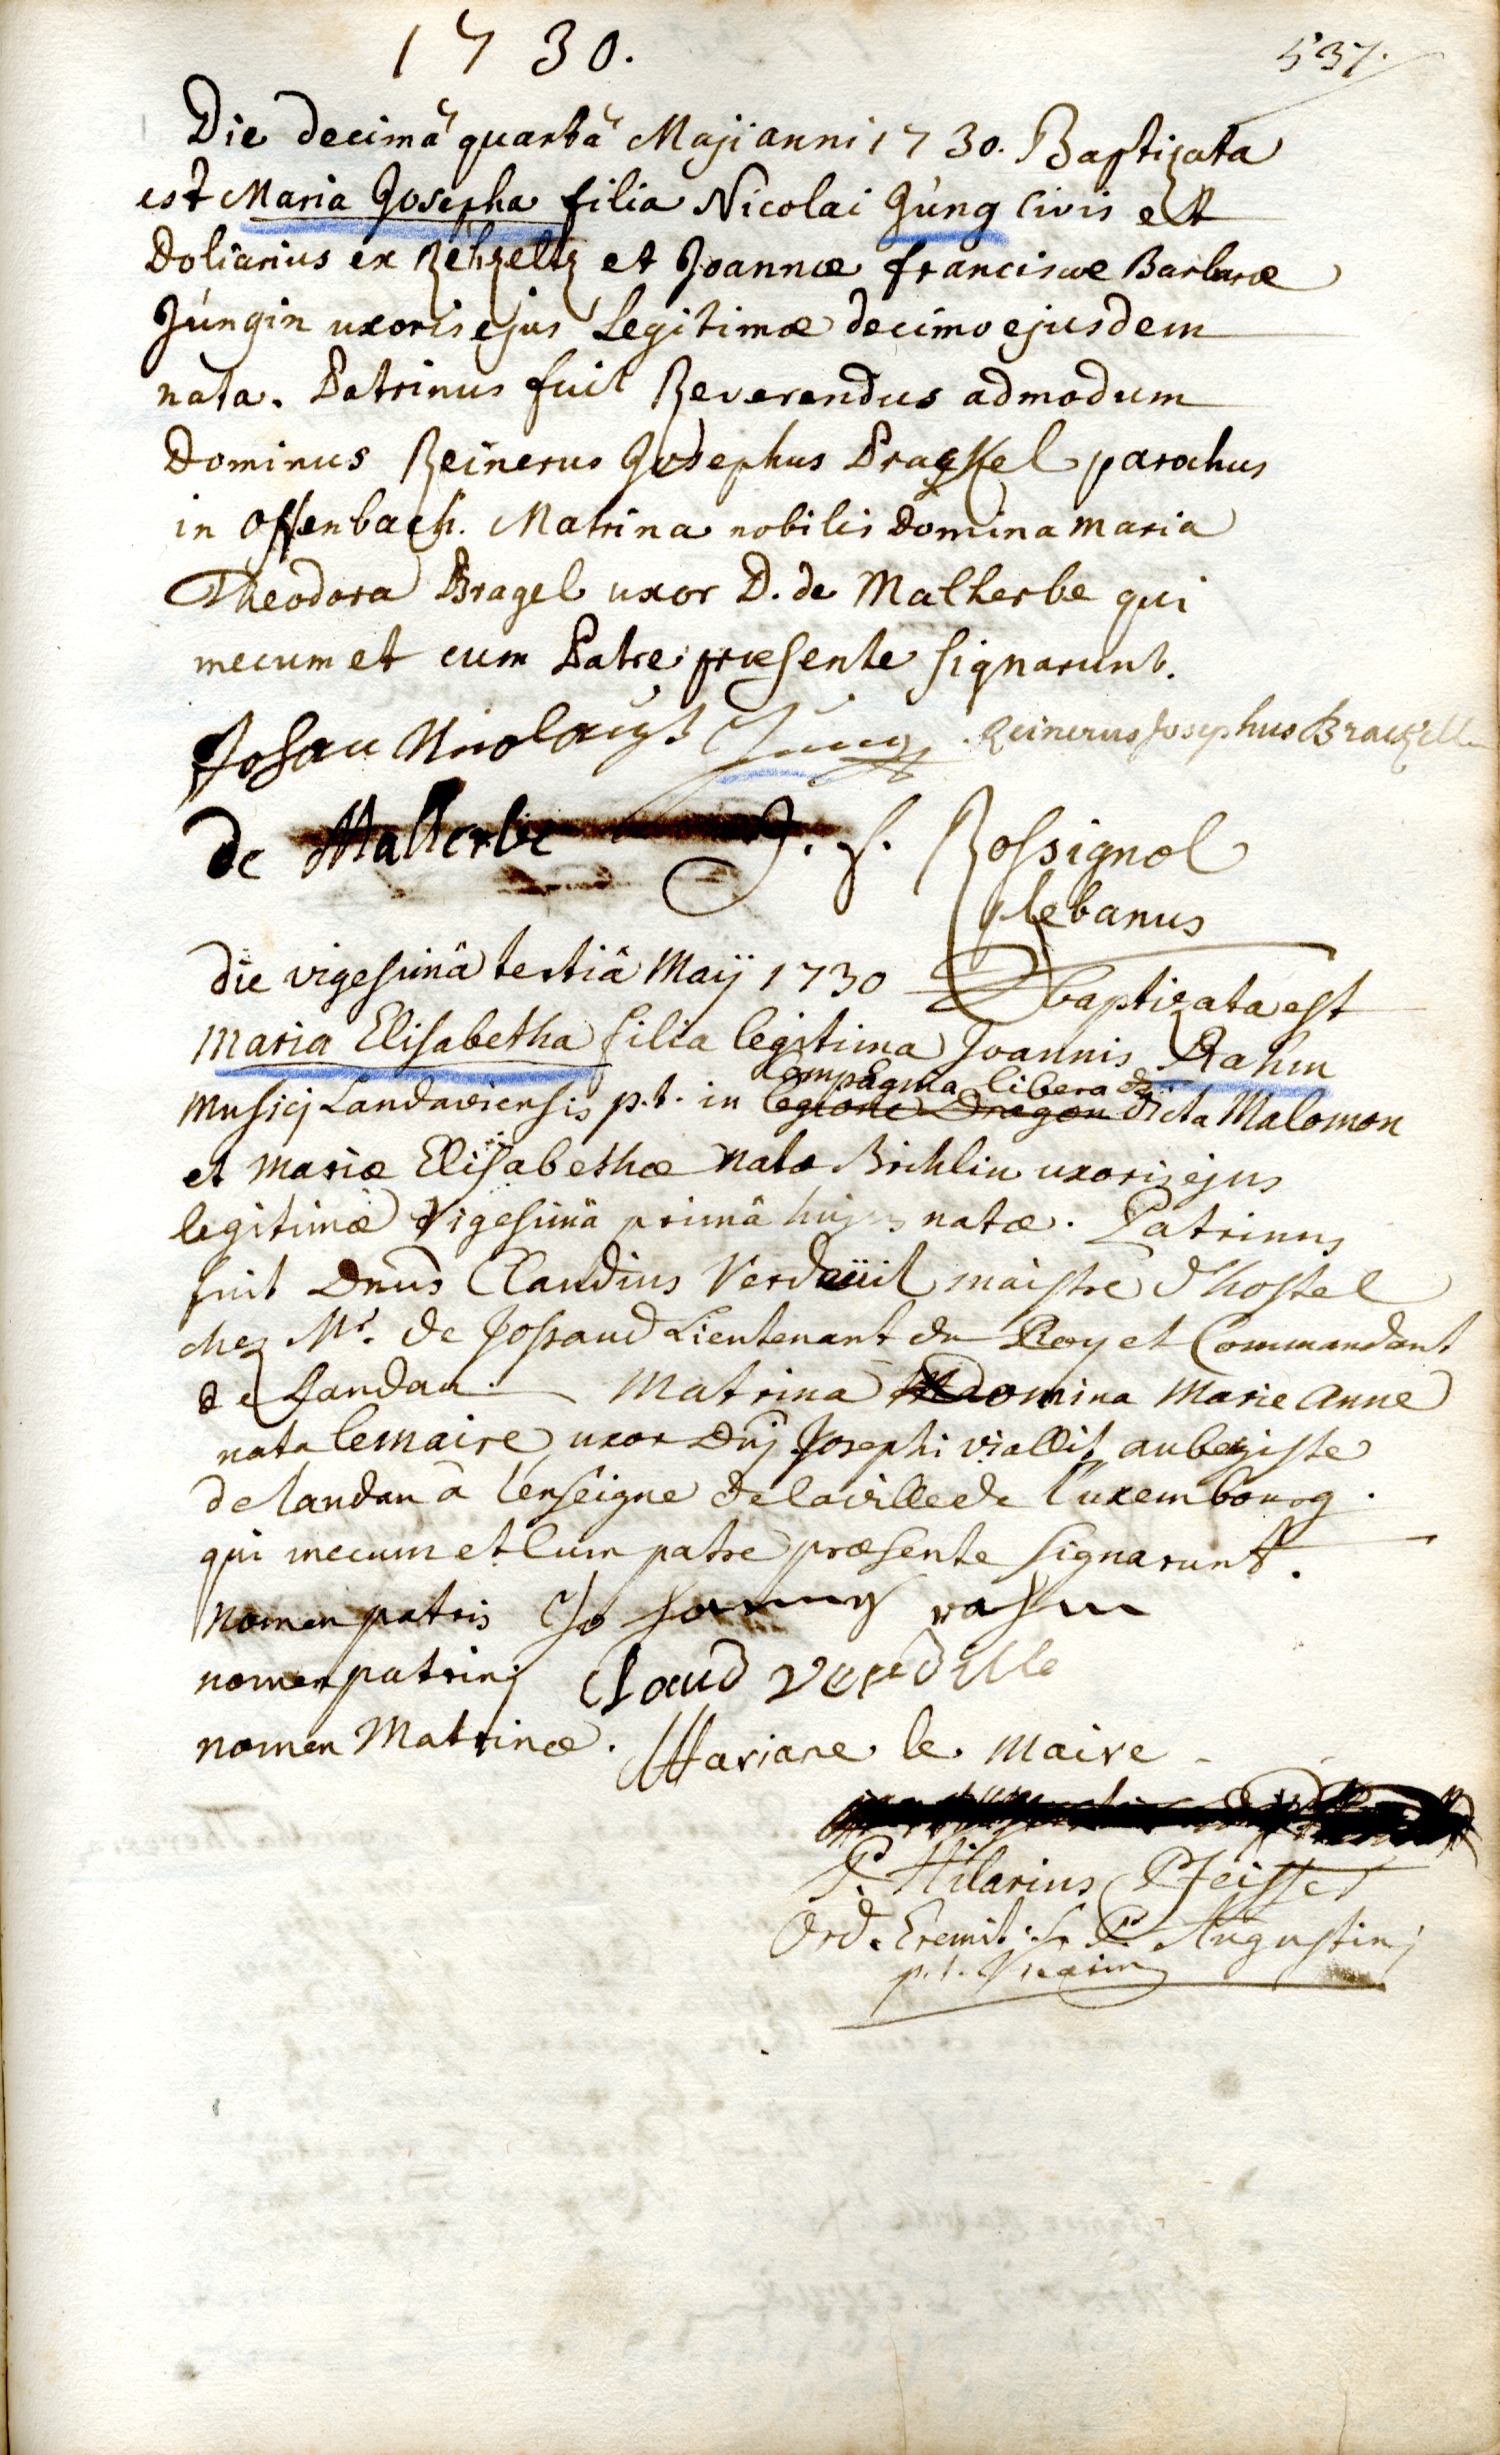 1730.
537.
Die decimâ quartâ Maji anni 1730. Baptizata
est Maria Josepha filia Nicolai Júng civis ett
Doliarius ex et Joannæ franciscæ Barbaræ
Júngin uxoris ejus Legitimæ decimo ejusdem
nata. Patrinus fuit Reverendus admodum
Dominus Reinerus Josephus parochus
in Offenbach. Matrina nobilis Domina Maria
Theodora Bragel uxor D. de Malherbe qui
mecum et cum Patre præsente signarunt.
Johan Nicolaus Jung Reinerus Josephus
de Malherbe J. f. Rossignol
plebanus
die vigesimâ tertiâ Maij 1730 baptizata est
Maria Elisabetha filia legitima Joannis Rahm
Compagnia libera
Musici Landaviensis p.t. in legione Dragon dicta Malomon
et Mariæ Elisabethæ natæ Bichlin uxoris ejus
legitimæ vigesimâ primâ hujus natæ. Patrinus
fuit Dnus Claudius Verdeüil maistre d'hostel
chez Mr. de Jossaud Lieutenant du Roy et Commandant
de Landau. Matrina Domina Marie Anne
nata lemaire uxor Dnj Josephi viallit aubergiste
de landau a l'enseigne de la ville de luxembourg.
qui mecum et cum patre præsente signarunt.
nomen patris Johannes rahm
nomen patrinj Claud verdille
nomen Matrinæ. Mariane le maire
P. Hilarius Pfeiffer
Ord. Eremit. S. P. Augustinj
p.t. Vicarius